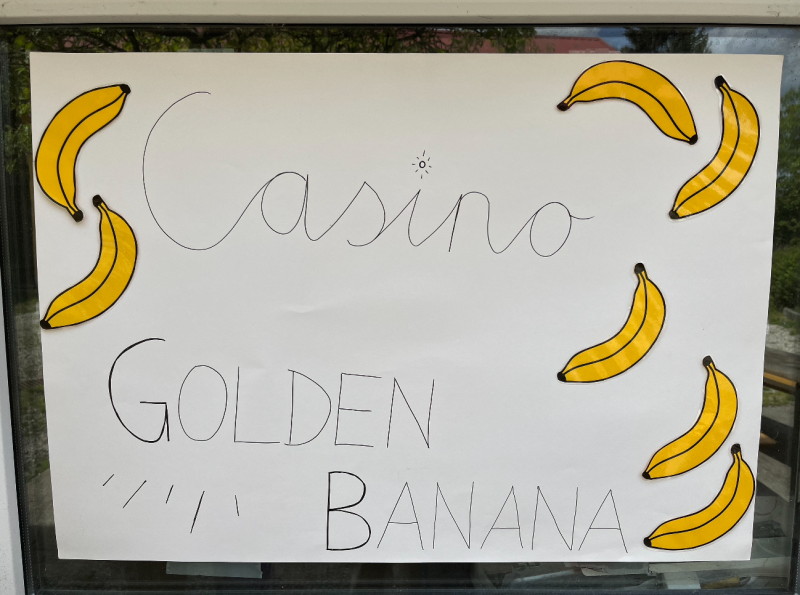 Casino
GOLDEN
BANANA